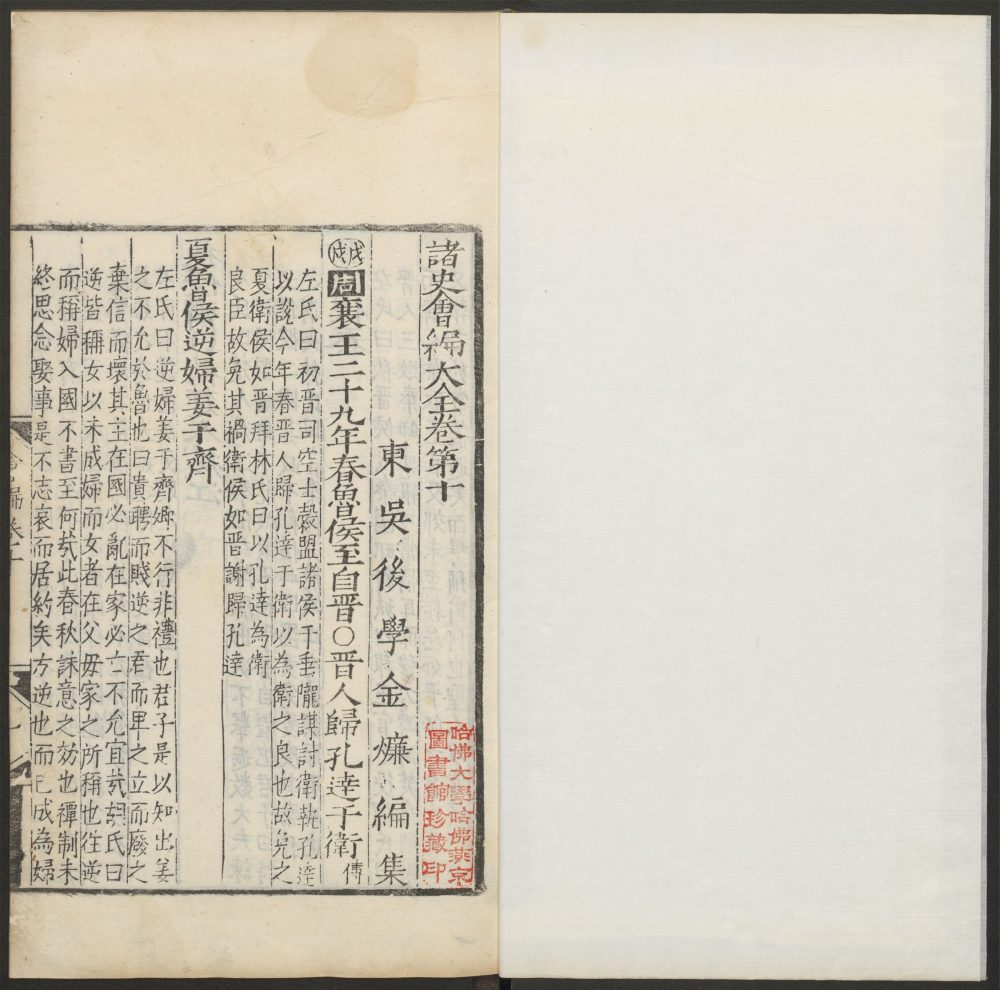 諸史會編大全卷第十
東吳後學金燫編集
戊戌周襄王二十九年春魯侯至自晋○晋人歸孔達于衛傳
左氏曰初晋司空士縠盟諸侯于垂隴謀討衛執孔達
以說今年春晋人歸孔達于衛以為衛之良也故免之
夏衛侯如晋拜林氏曰以孔達為衛
良臣故免其禍衛侯如晋謝歸孔達
夏魯侯逆婦姜于齊
左氏曰逆婦姜于齊卿不行非禮也君子是以知出姜
之不允於魯也曰貴聘而賤逆之君而卑之立而廢之
棄信而壞其主在國必亂在家必亡不允宜㢤胡氏曰
逆皆稱女以未成婦而女者在父母家之所稱也徃逆
而稱婦入國不書至何㢤此春秋誅意之効也禫制未
終思念娶事是不志哀而居約矣方逆也而已成為婦
會編卷十
哈佛大學哈佛燕京
圖書館珍藏印